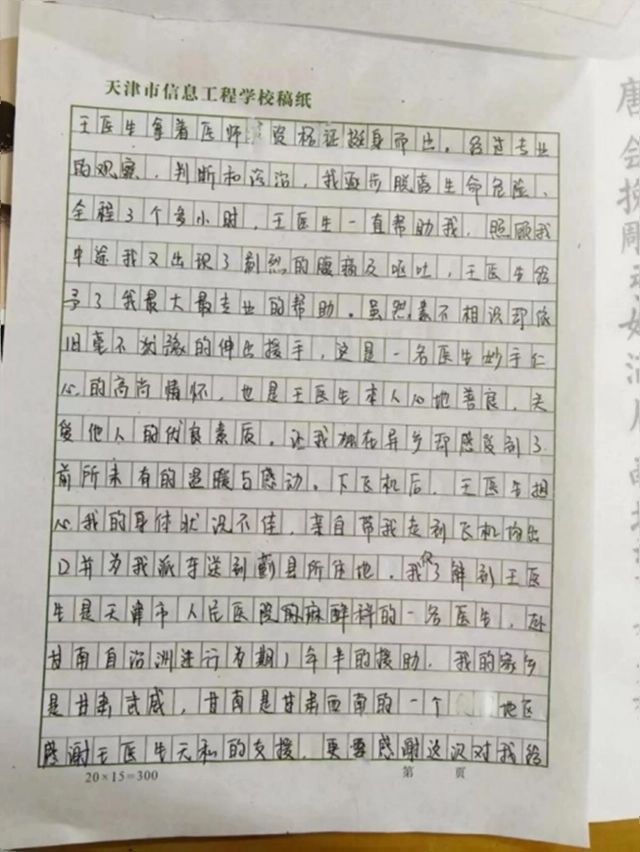 天津市信息工程学校稿纸
王医生拿着医师资格证挺身而出。经过专业
的观察、判断和诊治，我逐步脱离生命危险、
全程3个多小时，王医生一直帮助我、照顾我
中途我又出现了剧烈的腹痛及呕吐，王医生给
予了我最大最专业的帮助。虽然素不相识却依
旧毫不犹豫的伸出援手，这是一名医生妙手仁
心的高尚情怀，也是王医生本人心地善良、关
爱他人的优良素质。让我独在异乡却感受到了
前所未有的温暖与感动。下飞机后，王医生担
心我的身体状况不佳，亲自带我走到飞机场出
口并为我派车送到蓟县所住地。我仅了解到王医
生是天津市人民医院的麻醉科的一名医生，赴
甘南自治洲进行为期1年半的援助。我的家乡
是甘肃武威，甘南是甘肃西南的一个 地区
感谢王医生无私的支援、更要感谢这次对我给
20×15=300 第 页